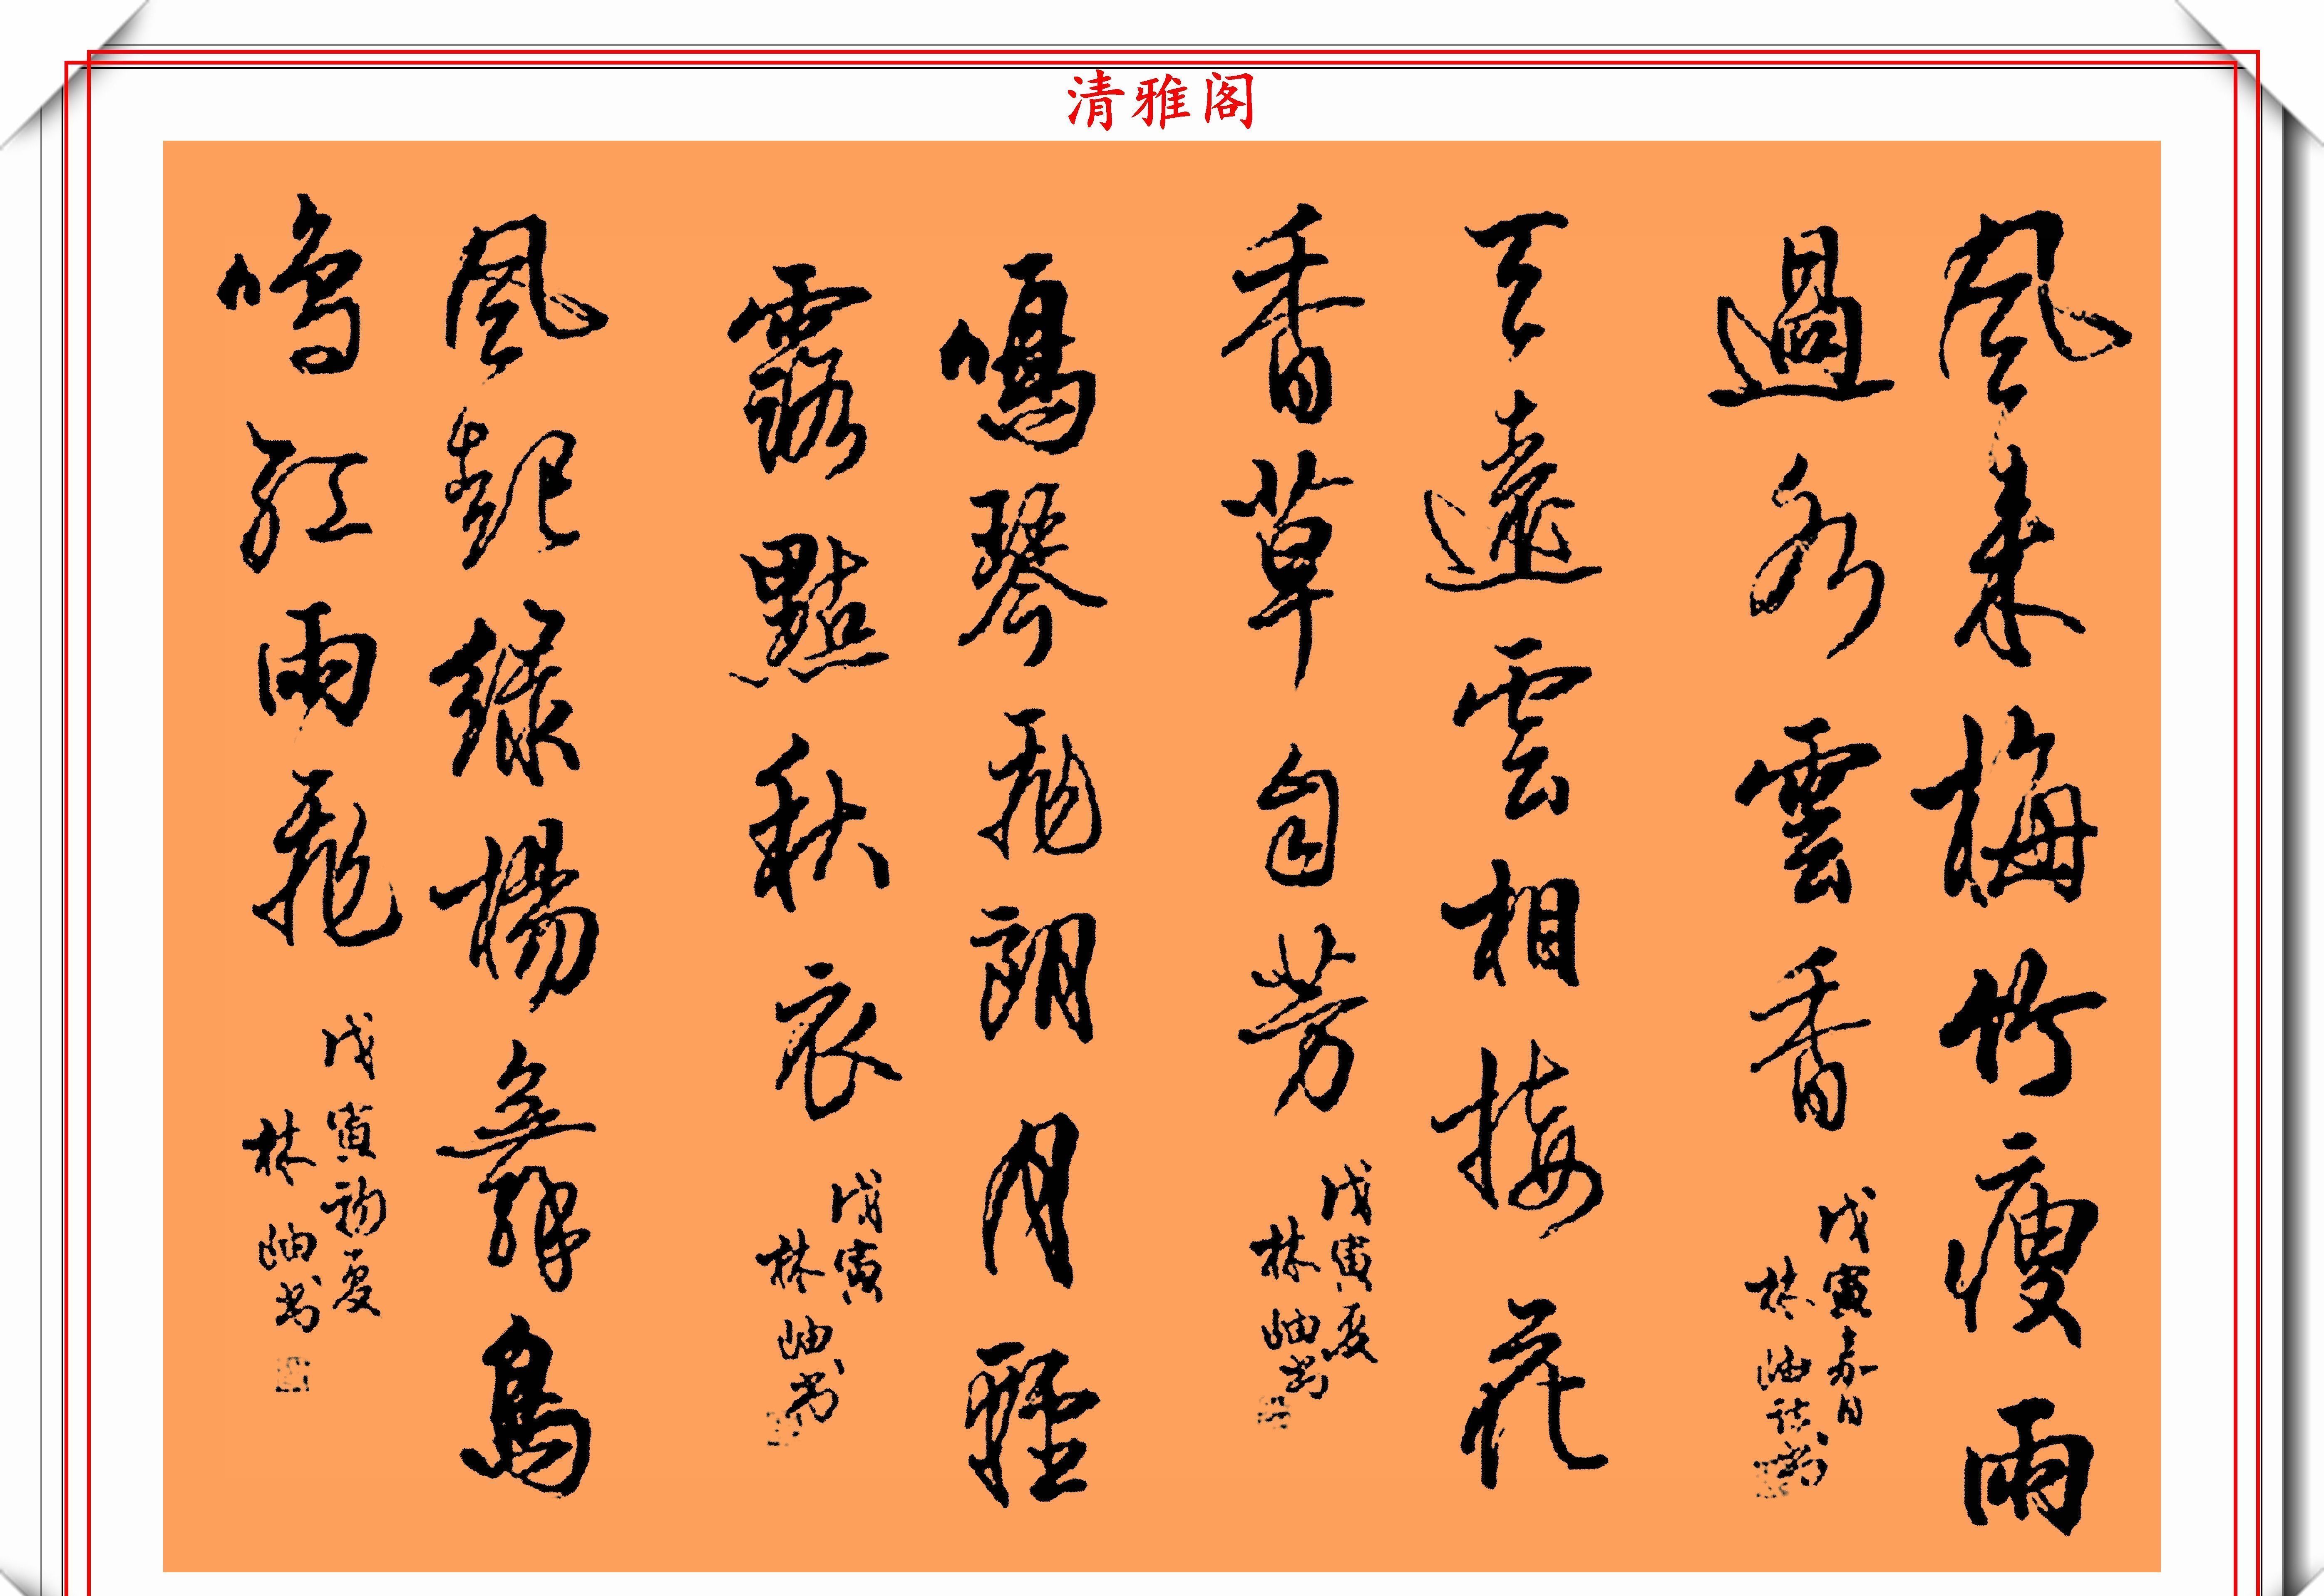 清雅阁
風来梅竹瘦雨
過水雲香
戊寅春月
林岫詩書
天遠雲相接花
香草自芳
戊寅夏
林岫書
鳴琴飛朗月輕
露點秋衣
戊寅
林岫書
風起綠楊舞鳥
鳴紅雨飛
戊寅初夏
林岫書